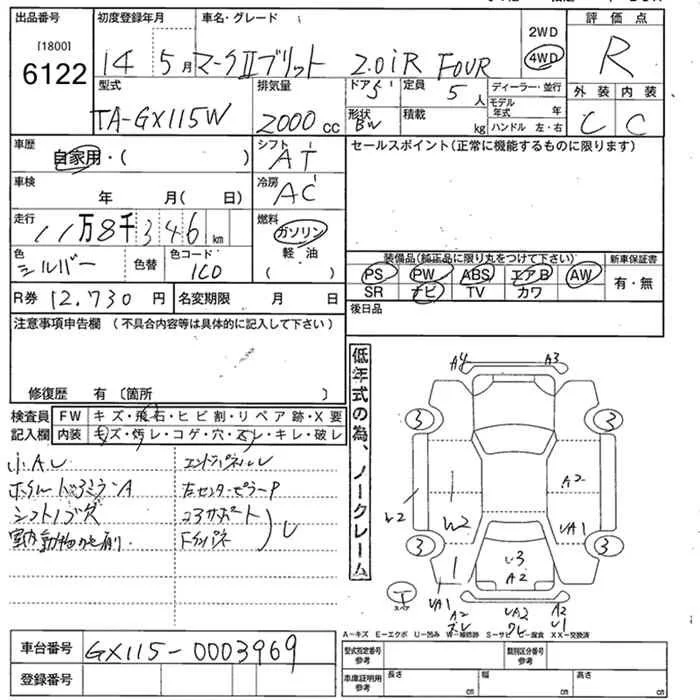 出品番号 初度登録年月 車名・グレード 評価点
[1800]
6122
14 5月 マークⅡブリット 2.0iR FOUR
2WD
4WD
R
型式 排気量 ドア 5 定員 5人 ディーラー・並行 外装 内装
TA-GX115W 2000cc 形状 BW 積載 kg モデル年式 年
ハンドル 左・右 C C
車歴 自家用・( ) シフト AT セールスポイント(正常に機能するものに限ります)
車検 年 月( 日) 冷房 AC
走行 11万8千346km 燃料 ガソリン
軽油
( )
色 シルバー 色替 色コード 1C0 装備品(純正品に限り丸をつけて下さい) 新車保証書
PS PW ABS エアB AW 有・無
SR ナビ TV カワ
R券 12,730円 名変期限 月 日 後日品
注意事項申告欄(不具合内容等は具体的に記入して下さい)
修復歴 有〔箇所 〕
低年式の為、ノークレーム
検査員 FW キズ・飛石・ヒビ割・リペア跡・X要
記入欄 内装 キズ・汚レ・コゲ・穴・スレ・キレ・破レ
小A.U エンドパネルU
左センターピラーP
シフトノブズ コアサポート
A4 A3
3 3
A2
W2 W2 UA1
3 U3 3
A2
T
スペア
UA1 A2 UA2 A2
U1
A-キズ E-エクボ U-凹み W-補修跡 S-サビ C-腐食 XX-交換済
車台番号 GX115-0003969
登録番号
型式指定番号 参考 類別区分番号 参考
車庫証明用 参考 長さ cm 幅 cm 高さ cm